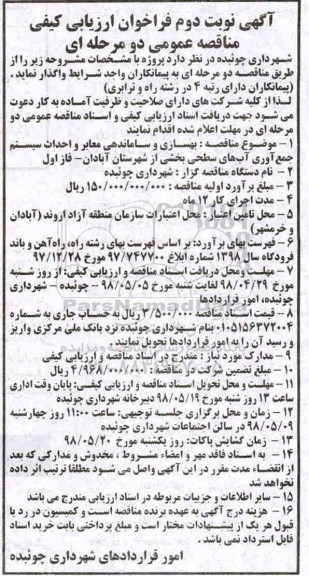 آگهی نوبت دوم فراخوان ارزیابی کیفی
مناقصه عمومی دو مرحله ای
شهرداری چوئبده در نظر دارد پروژه با مشخصات مشروحه زیر را از
طریق مناقصه دو مرحله ای به پیمانکاران واجد شرایط واگذار نماید .
(پیمانکاران دارای رتبه ۴ در رشته راه و ترابری)
لذا از کلیه شرکت های دارای صلاحیت و ظرفیت آماده به کار دعوت
می شود جهت دریافت اسناد ارزیابی کیفی و اسناد مناقصه عمومی دو
مرحله ای در مهلت اعلام شده اقدام نمایند
۱ – موضوع مناقصه : بهسازی و ساماندهی معابر و احداث سیستم
جمع‌آوری آب‌های سطحی بخشی از شهرستان آبادان– فاز اول
۲ – نام دستگاه مناقصه گزار : شهرداری چوئبده
۳ – مبلغ برآورد اولیه مناقصه : ۱۵۰/۰۰۰/۰۰۰/۰۰۰ ریال
۴ – مدت اجرای کار ۱۲ ماه
۵ – محل تامین اعتبار : محل اعتبارات سازمان منطقه آزاد اروند (آبادان
و خرمشهر)
۶ – فهرست بهای برآورد: بر اساس فهرست بهای رشته راه، راه‌آهن و باند
فرودگاه سال ۱۳۹۸ شماره ابلاغ ۹۷/۷۴۷۷۰۰ مورخ ۹۷/۱۲/۲۸
۷ – مهلت ومحل دریافت اسناد مناقصه و ارزیابی کیفی: از روز شنبه
مورخ ۹۸/۰۴/۲۹ لغایت شنبه مورخ ۹۸/۰۵/۰۵ – چوئبده – شهرداری
چوئبده، امور قراردادها
۸ – قیمت اسناد مناقصه ۳/۵۰۰/۰۰۰ ریال به حساب جاری به شماره
۰۱۰۵۱۵۶۳۷۲۰۰۴ بنام شهرداری چوئبده نزد بانک ملی مرکزی واریز
و رسید آن را به امور قراردادها تحویل نمایند .
۹ – مدارک مورد نیاز : مندرج در اسناد مناقصه و ارزیابی کیفی
۱۰ – مبلغ تضمین شرکت در مناقصه : ۴/۹۶۸/۰۰۰/۰۰۰ ریال
۱۱ – مهلت و محل تحویل اسناد مناقصه و ارزیابی کیفی: پایان وقت اداری
ساعت ۱۳ روز شنبه مورخ ۹۸/۰۵/۱۹ دبیرخانه شهرداری چوئبده
۱۲ – زمان و محل برگزاری جلسه توجیهی: ساعت ۱۱:۰۰ روز چهارشنبه
۹۸/۰۵/۰۹ در سالن اجتماعات شهرداری چوئبده
۱۳ – زمان گشایش پاکات: روز یکشنبه مورخ ۹۸/۰۵/۲۰
۱۴ – به اسناد فاقد مهر و امضاء مشروط ، مخدوش و مدارکی که بعد
از انقضاء مدت مقرر در این آگهی واصل می شود مطلقا ترتیب اثر داده
نخواهد شد
۱۵ – سایر اطلاعات و جزییات مربوطه در اسناد ارزیابی مندرج می باشد
۱۶ – هزینه درج آگهی به عهده برنده مناقصه است و کمیسیون در رد یا
قبول هر یک از پیشنهادات مختار است و مبلغ پرداختی بابت خرید اسناد
قابل استرداد نمی باشد .
امور قراردادهای شهرداری چوئبده